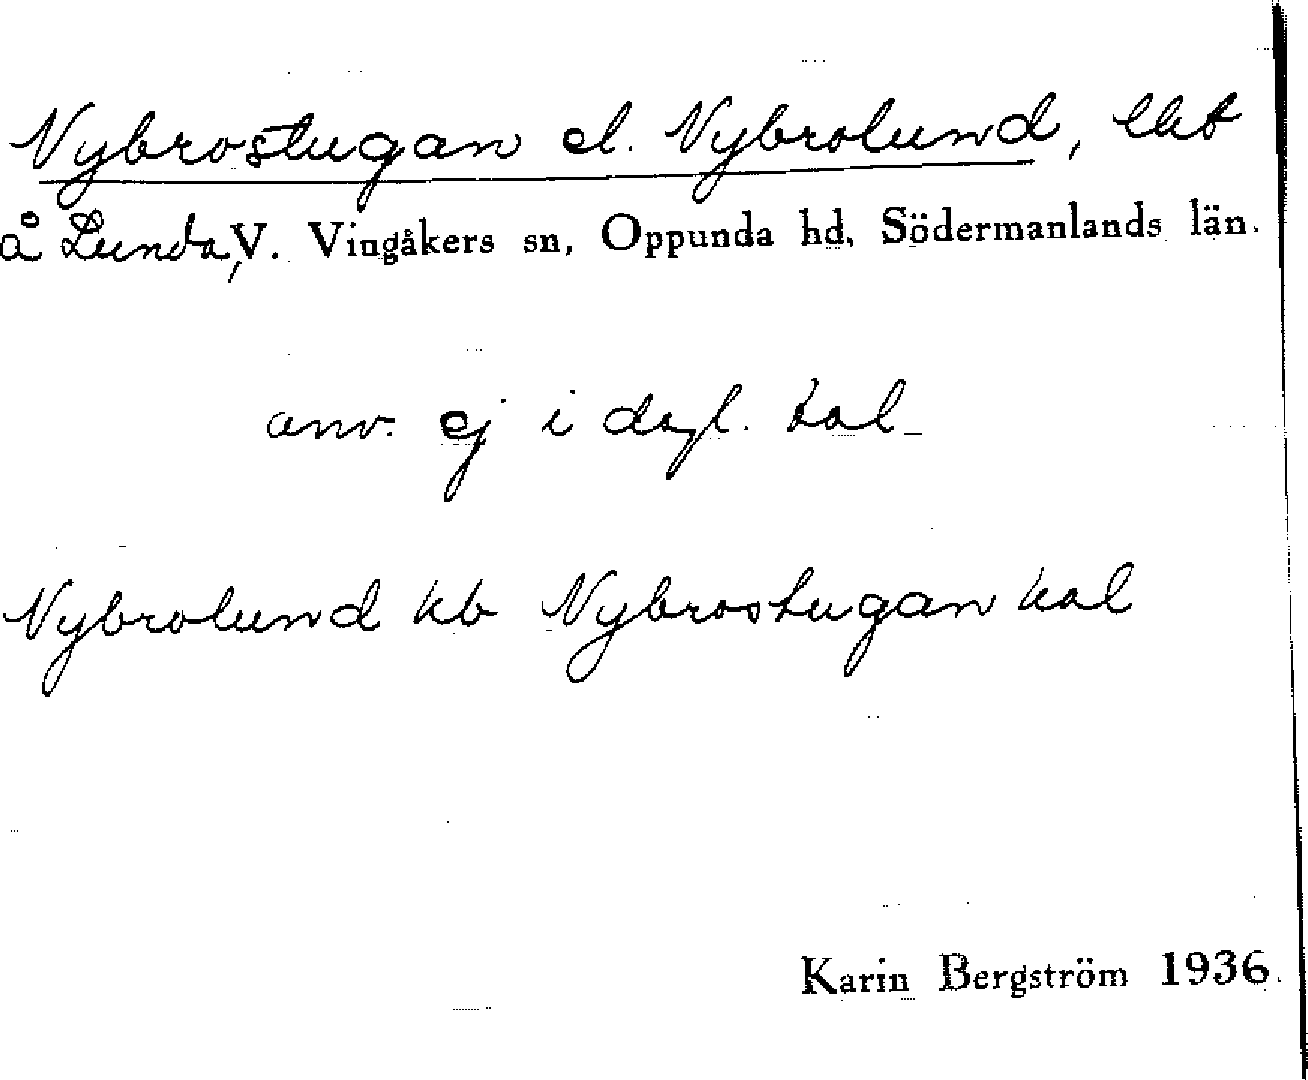 Nybrostugan el. Nybrolund, lht
å Lunda, V. Vingåkers sn, Oppunda hd, Södermanlands län.
anv. ej i dagl. tal
Nybrolund kb Nybrostugan
Karin Bergström 1936.